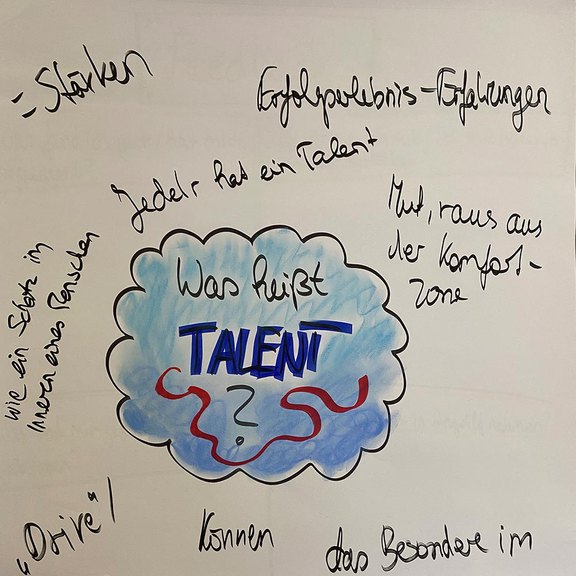 = Stärken
Erfolgserlebnis-Erfahrungen
Jede/r hat ein Talent
Mut, raus aus
der Komfort-
zone
wie ein Schatz im
Inneren eines Menschen
Was heißt
TALENT
?
"Drive"/
Können
das Besondere im